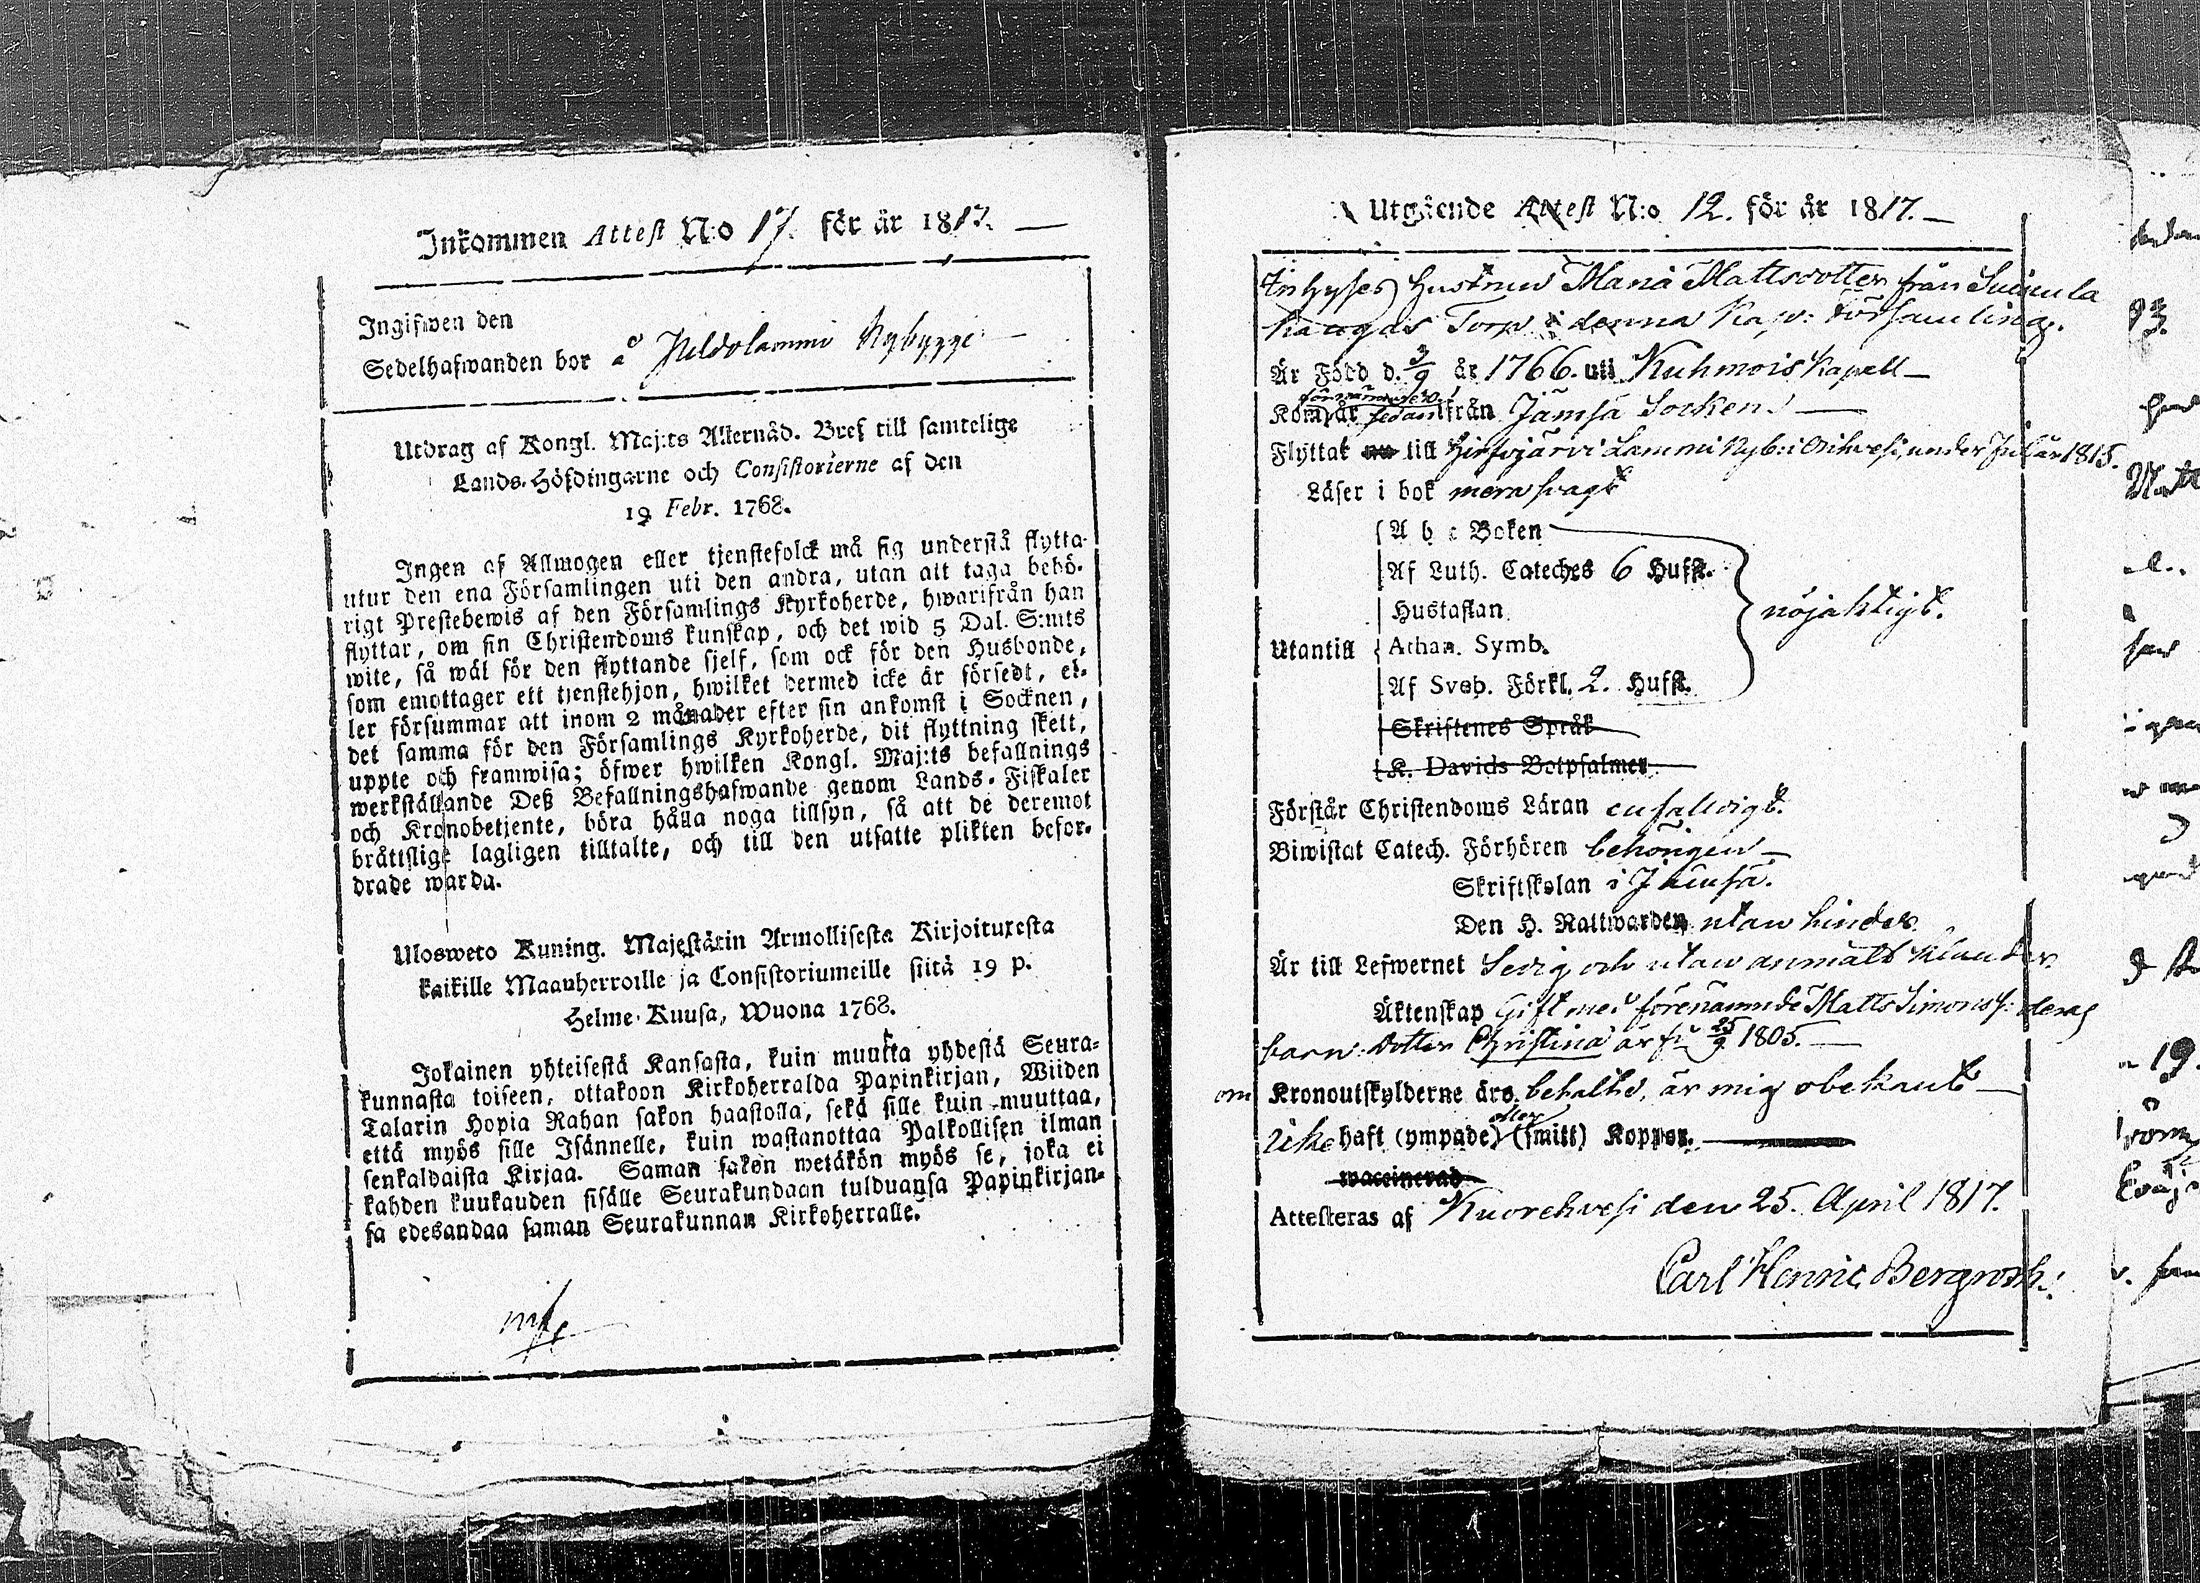 Inkommen Attest N:o 17. för år 1817. —
Ingifwen den
Sedelhafwanden bor å Nybygge —
Utdrag af Kongl. Maj:ts Allernåd. Bref till samtelige
Lands-Höfdingarne och Consistorierne af den
19 Febr. 1768.
Ingen af Allmogen eller tjenstefolck må sig understå flytta
utur den ena Församlingen uti den andra, utan att taga behö-
rigt Prestebewis af den Församlings Kyrkoherde, hwarifrån han
flyttar, om sin Christendoms kunskap, och det wid 5 Dal. S:mts
wite, så wäl för den flyttande sjelf, som ock för den Husbonde,
som emottager ett tjenstehjon, hwilket dermed icke är försedt, el-
ler försummar att inom 2 månader efter sin ankomst i Socknen,
det samma för den Församlings Kyrkoherde, dit flyttning skett,
uppte och framwisa; öfwer hwilken Kongl. Maj:ts befallnings
werkställande Deß Befallningshafwande genom Lands-Fiskaler
och Kronobetjente, böra hålla noga tillsyn, så att de deremot
bråttslige lagligen tilltalte, och till den utsatte plikten befor-
drade warda.
Ulosweto Kuning. Majestätin Armollisesta Kirjoituxesta
kaikille Maanherroille ja Consistoriumeille siitä 19 p.
Helme-Kuusa, Wuona 1768.
Jokainen yhteisestä Kansasta, kuin muutta yhdestä Seura-
kunnasta toiseen, ottakoon Kirkoherralda Papinkirjan, Wiiden
Talarin Hopia Rahan sakon haastolla, sekä sille kuin muuttaa,
että myös sille Isännelle, kuin wastanottaa Palkollisen ilman
senkaldaista Kirjaa. Saman sakon wetäkön myös se, joka ei
kahden kuukauden sisälle Seurakundaan tulduansa Papinkirjan-
sa edesandaa saman Seurakunnan Kirkoherralle.
Utgående Attest N:o 12. för år 1817. —
Inhyses Hustrun Maria Mattsdotter från
kangas Torp i denna Kap: Församling.
Är Född d. 3/9 år 1766. uti Kuhmois Kapell —
Kom år sedan från Jämsä Socken. —
Flyttat nu till Hirsijärvi Lammi Nyb: i Orihvesi, under Jul år 1815.
Läser i bok mera svagt
A b c Boken
Af Luth. Cateches 6 Hufst.
Hustaflan
Utantill Athan. Symb. nöjaktigt.
Af Sveb. Förkl. 2. Hufst.
Skriftenes Språk
K. Davids Botpsalmer
Förstår Christendoms Läran enfaldigt.
Biwistat Catech. Förhören behörigen —
Skriftskolan i Jämsä.
Den H. Nattwarden utan hinder
Är till Lefwernet Sedig och utan anmält klander.
Äktenskap Gift med förenämnde Matts Simonss: deras
barn: dotter Christina är fö 25/9 1805. —
om Kronoutskylderne äro betalte, är mig obekant —
icke haft (ympade) eller (smitt) Koppor. —
waccinerad
Attesteras af Kuorehvesi den 25. April 1817.
Carl Henric Bergroth.